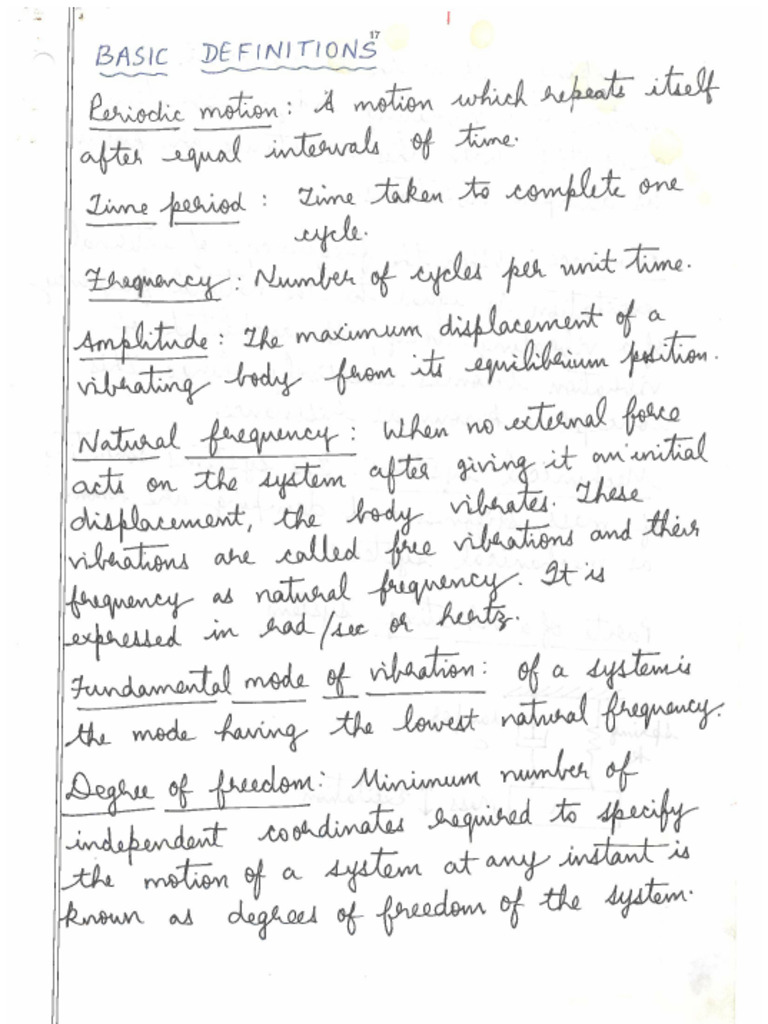 1
BASIC DEFINITIONS 17
Periodic motion: A motion which repeats itself
after equal intervals of time.
Time period: Time taken to complete one
cycle.
Frequency: Number of cycles per unit time.
Amplitude: The maximum displacement of a
vibrating body from its equilibrium position.
Natural frequency: When no external force
acts on the system after giving it an initial
displacement, the body vibrates. These
vibrations are called free vibrations and their
frequency as natural frequency. It is
expressed in rad/sec or hertz.
Fundamental mode of vibration: of a system is
the mode having the lowest natural frequency.
Degree of freedom: Minimum number of
independent coordinates required to specify
the motion of a system at any instant is
known as degrees of freedom of the system.